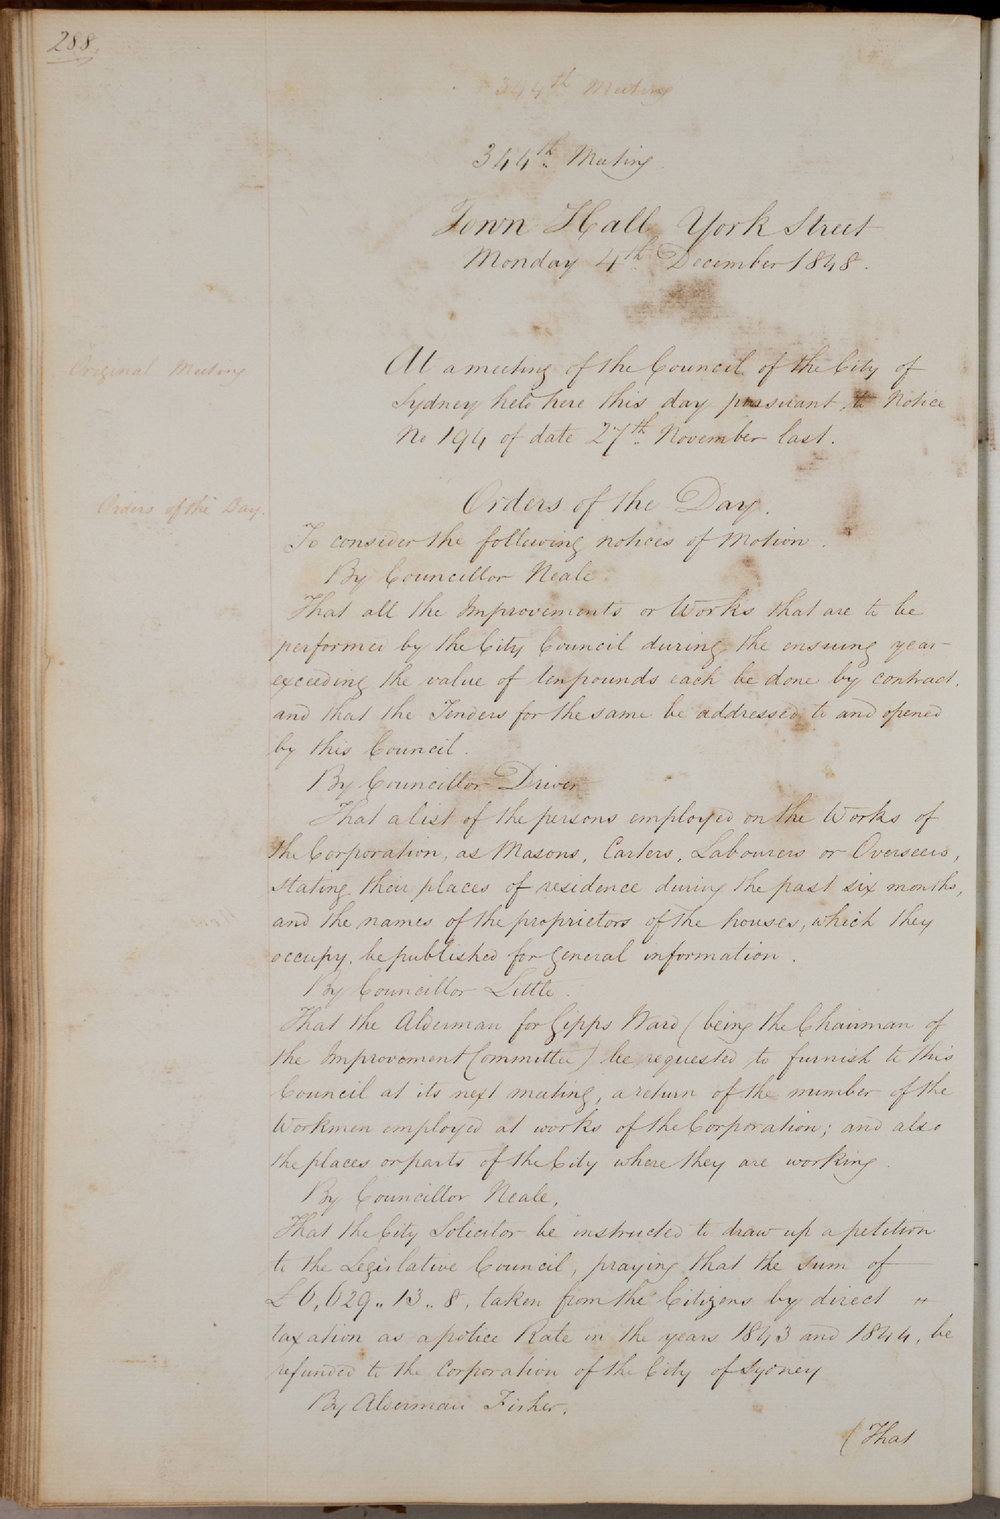 288
344th Meeting
344th Meeting.
Town Hall York Street
Monday 4th December 1848.
Original Meeting
At a meeting of the Council of the City of
Sydney held here this day pursuant to Notice
No 194 of date 27th November last.
Orders of the Day.
Orders of the Day.
To consider the following notices of Motion.
By Councillor Neale.
That all the Improvements or Works that are to be
performed by the City Council during the ensuing year
exceeding the value of ten pounds each be done by contract,
and that the Tenders for the same be addressed to and opened
by this Council.
By Councillor Driver
That a list of the persons employed on the Works of
the Corporation, as Masons, Carters, Labourers or Overseers,
stating their places of residence during the past six months,
and the names of the proprietors of the houses, which they
occupy, be published for general information.
By Councillor Little.
That the Alderman for Gipps Ward (being the Chairman of
the Improvement Committee) be requested to furnish to this
Council at its next meeting, a return of the number of the
Workmen employed at works of the Corporation; and also
the places or parts of the City where they are working.
By Councillor Neale,
That the City Solicitor be instructed to draw up a petition
to the Legislative Council, praying that the sum of
£6,629,, 13,, 8, taken from the Citizens by direct "
taxation as a police Rate in the years 1843 and 1844, be
refunded to the Corporation of the City of Sydney
By Alderman Fisher.
(That